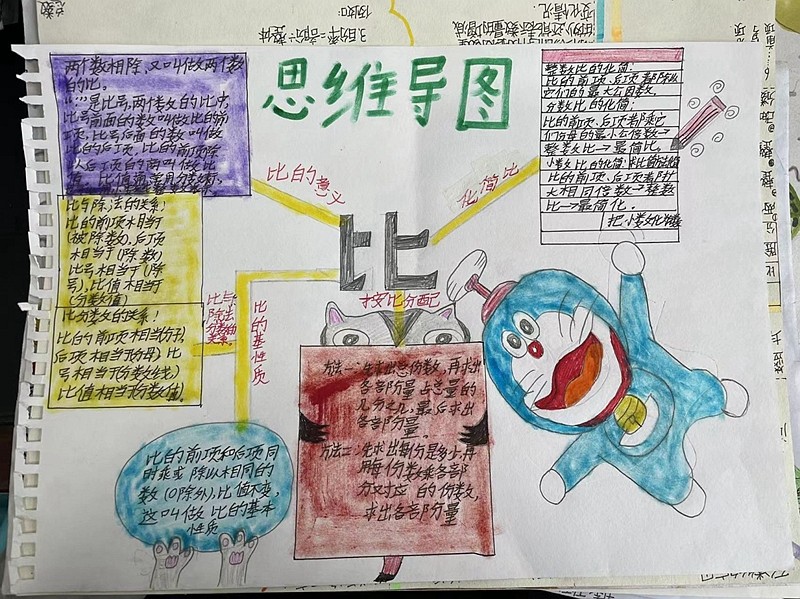 思维导图
两个数相除,又叫做两个数
的比。
“:”是比号,两个数的比中,
比号前面的数叫做比的前
项,比号后面的数叫做
比的后项,比的前项除
以后项的商叫做比
值
比的意义
化简比
整数比的化简:
比的前项、后项都除以
它们的最大公因数。
分数比的化简:
比的前项、后项都乘它
们分母的最小公倍数→
整数比→最简比。
小数比的化简:
比的前项、后项都扩
大相同倍数→整数
比→最简化。
比
比与除法的关系:
比的前项相当于
(被除数),后项
相当于(除数)
比号相当于(除
号),比值相当于
(分数值)
比分数的关系!
比的前项相当(分子),
后项相当于(分母)比
号相当于(分数线)
比值相当于(分数值)
比与
除法
分数的
关系
比的基性质
按比分配
方法一:先求出总份数,再求出
各部分量占总量的
几分之几,最后求出
各部分量。
方法二:先求出每份是多少,再
用每份数乘各部
分对应的份数,
求出各部分量
比的前项和后项同
时乘或除以相同的
数(0除外),比值不变,
这叫做比的基本
性质